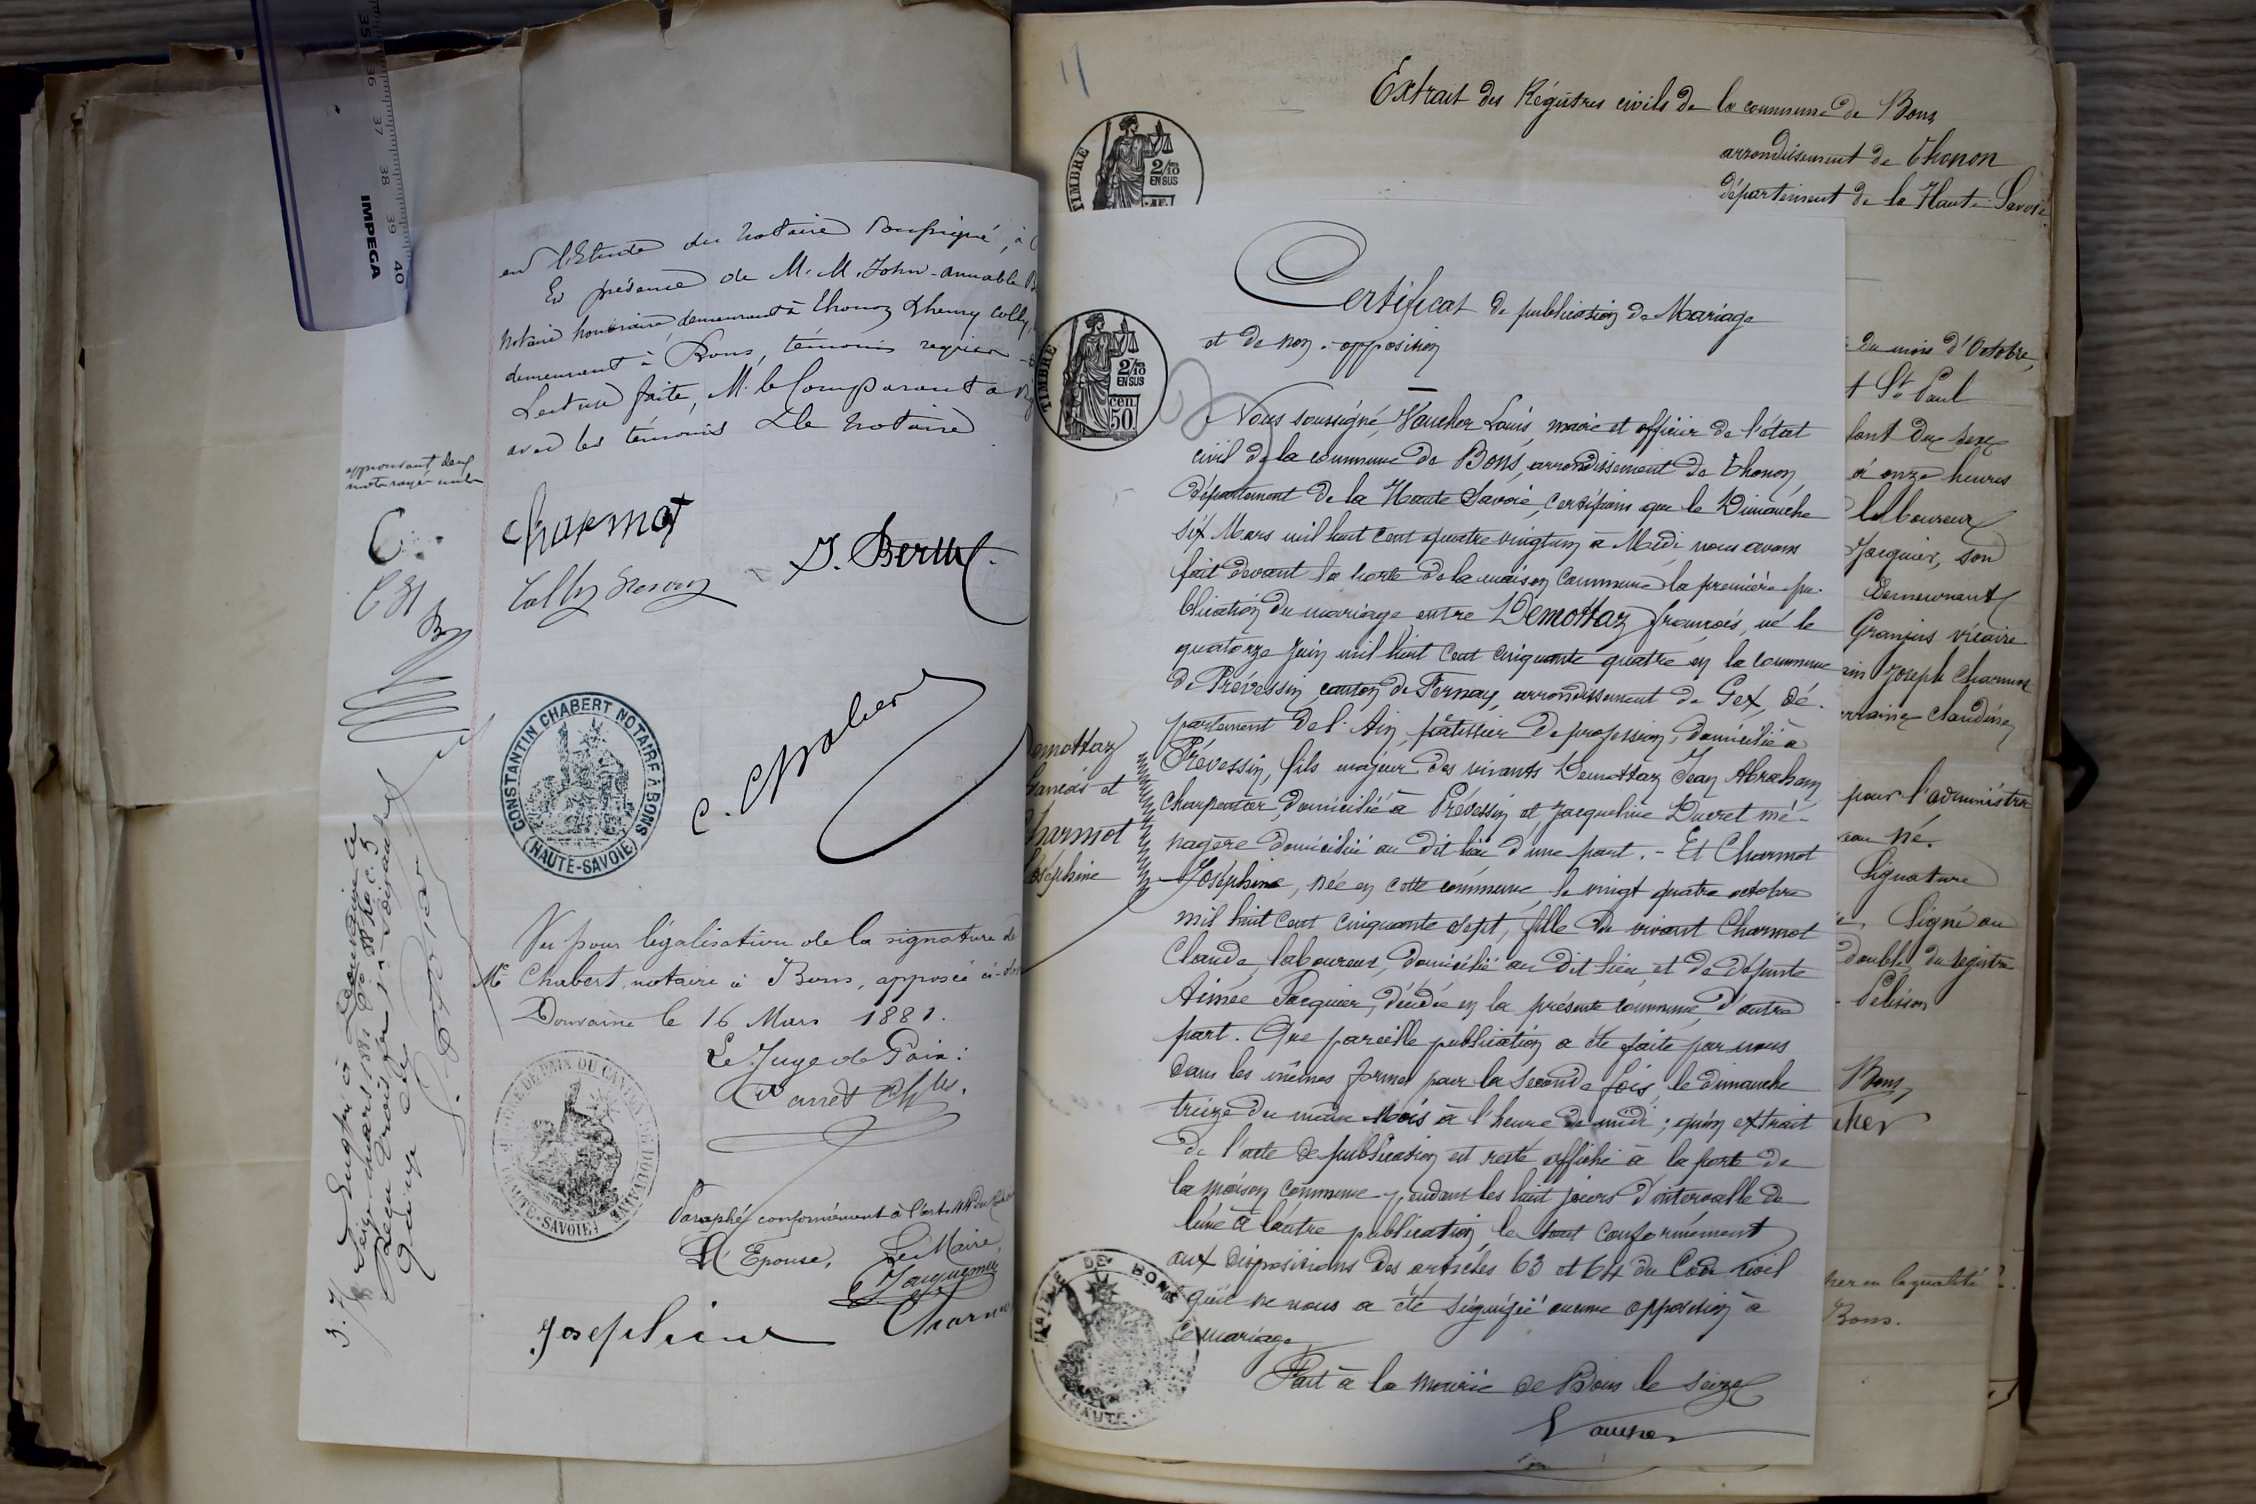 35 36 37 38 39 40
IMPEGA
en l'Etude du notaire soussigné, à
En présence de M. M. John-Amable
notaire honoraire, demeurant à Thonon & henry Colly,
demeurant à Bons, témoins requis
Lecture faite, M. le Comparant a
avec les témoins & le notaire
approuvant deux
mots rayés nuls
Charmot
J. Berthet
Colly henry
C. Chabert
CONSTANTIN CHABERT NOTAIRE À BONS
(HAUTE-SAVOIE)
Vu pour légalisation de la signature de
Me Chabert, notaire à Bons, apposée ci-des
Douvaine le 16 Mars 1881.
Le Juge de Paix:
JUSTICE DE PAIX DU CANTON DE DOUVAINE
HAUTE-SAVOIE
Paraphé conformément à l'art. 44 du Code
L'Epouse, Le Maire,
Jacquemin
Josephine Charmo
Enregistré à Douvaine le
seize mars 1881
11
Extrait des Régistres civils de la commune de Bons
arrondissement de Thonon
département de la Haute Savoie
TIMBRE
2/10
EN SUS
Certificat de publication de Mariage
et de non-opposition
TIMBRE
2/10
EN SUS
50 cen
Nous soussigné, Vaucher Louis, maire et officier de l'état
civil de la commune de Bons, arrondissement de Thonon,
département de la Haute Savoie, certifions que le Dimanche
six Mars mil huit cent quatre vingt un à Midi nous avons
fait devant la porte de la maison Commune la première pu-
blication du mariage entre Démottaz françois, né le
quatorze Juin mil huit cent cinquante quatre en la commune
de Prévessin, canton de Fernay, arrondissement de Gex, dé-
partement de l'Ain, pâtissier de profession, domicilié à
Prévessin, fils majeur des vivants Demottaz Jean Abraham
charpentier, domicilié à Prévessin et Jacqueline Ducret mé-
nagère domiciliée au dit lieu d'une part. - Et Charmot
Joséphine, née en cette commune, le vingt quatre octobre
mil huit cent cinquante sept, fille du vivant Charmot
Claude, laboureur, domicilié au dit lieu et de défunte
Aimée Jacquier, décédée en la présente commune, d'autre
part. Que pareille publication a été faite par nous
dans les mêmes formes pour la seconde fois, le dimanche
treize du même Mois à l'heure de midi; qu'un extrait
de l'acte de publication est resté affiché à la porte de
la maison commune pendant les huit jours d'intervalle de
l'une à l'autre publication, le tout conformément
aux dispositions des articles 63 et 64 du Code Civil
qu'il ne nous a été signifié aucune opposition à
ce mariage
Fait à la mairie de Bons le seize
Vaucher
emottaz
françois et
harmot
Joséphine
MAIRIE DE BONS
HAUTE-
du mois d'Octobre,
St Paul
fant du sexe
à onze heures
laboureur
Jacquier, son
demeurant
Granjus vicaire
Joseph Charmot
Claudine
pour l'administra
né.
Signature
Signé au
double du registre
Pelisson
Bons,
cher
her en la qualité
Bons.